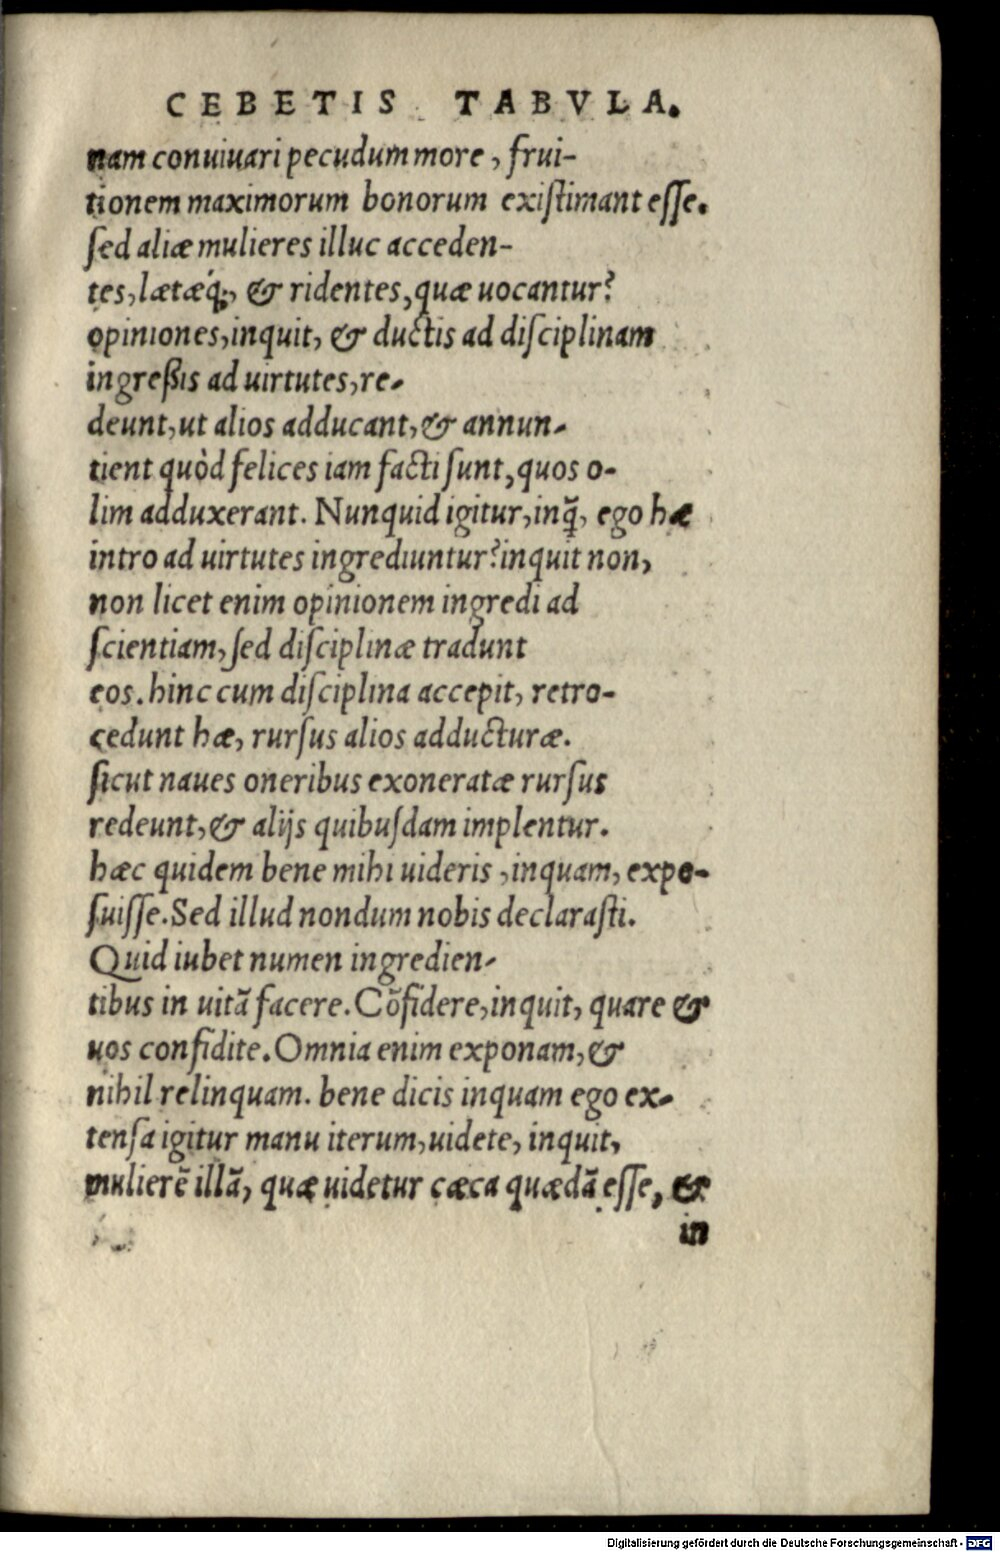 CEBETIS TABVLA.
nam conuiuari pecudum more, frui-
tionem maximorum bonorum existimant esse.
sed aliæ mulieres illuc acceden-
tes, lætæq́;, & ridentes, quæ uocantur?
opiniones, inquit, & ductis ad disciplinam
ingreßis ad uirtutes, re-
deunt, ut alios adducant, & annun-
tient quòd felices iam facti sunt, quos o-
lim adduxerant. Nunquid igitur, inq̃, ego hæ
intro ad uirtutes ingrediuntur? inquit non,
non licet enim opinionem ingredi ad
scientiam, sed disciplinæ tradunt
eos. hinc cum disciplina accepit, retro-
cedunt hæ, rursus alios adducturæ.
sicut naues oneribus exoneratæ rursus
redeunt, & alijs quibusdam implentur.
hæc quidem bene mihi uideris, inquam, expo-
suisse. Sed illud nondum nobis declarasti.
Quid iubet numen ingredien-
tibus in uitã facere. Cõfidere, inquit, quare &
uos confidite. Omnia enim exponam, &
nihil relinquam. bene dicis inquam ego ex-
tensa igitur manu iterum, uidete, inquit,
mulierẽ illã, quæ uidetur cæca quædã esse, &
in
Digitalisierung gefördert durch die Deutsche Forschungsgemeinschaft - DFG